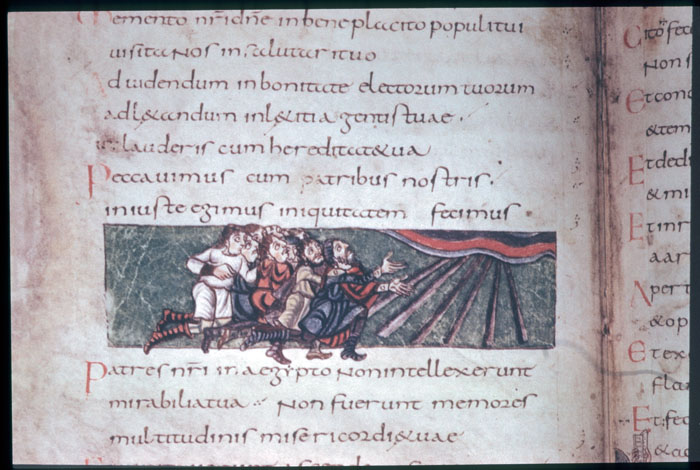 Memento nr̄i dn̄e in bene placito populi tui
visita nos in salutari tuo
Ad videndum in bonitate electorum tuorum
ad l&andum in l&itia gentis tuae·
ut lauderis cum hereditate tua
Peccavimus cum patribus nostris·
iniuste egimus iniquitatem fecimus·
Patres nr̄i in aegypto non intellexerunt
mirabilia tua· Non fuerunt memores
multitudinis misericordi&uae
Cito fec
Non s
Et conc
& tem
Et dedi
& mi
Et inr
aar
Aper
& op
Et ex
flam
Et fec